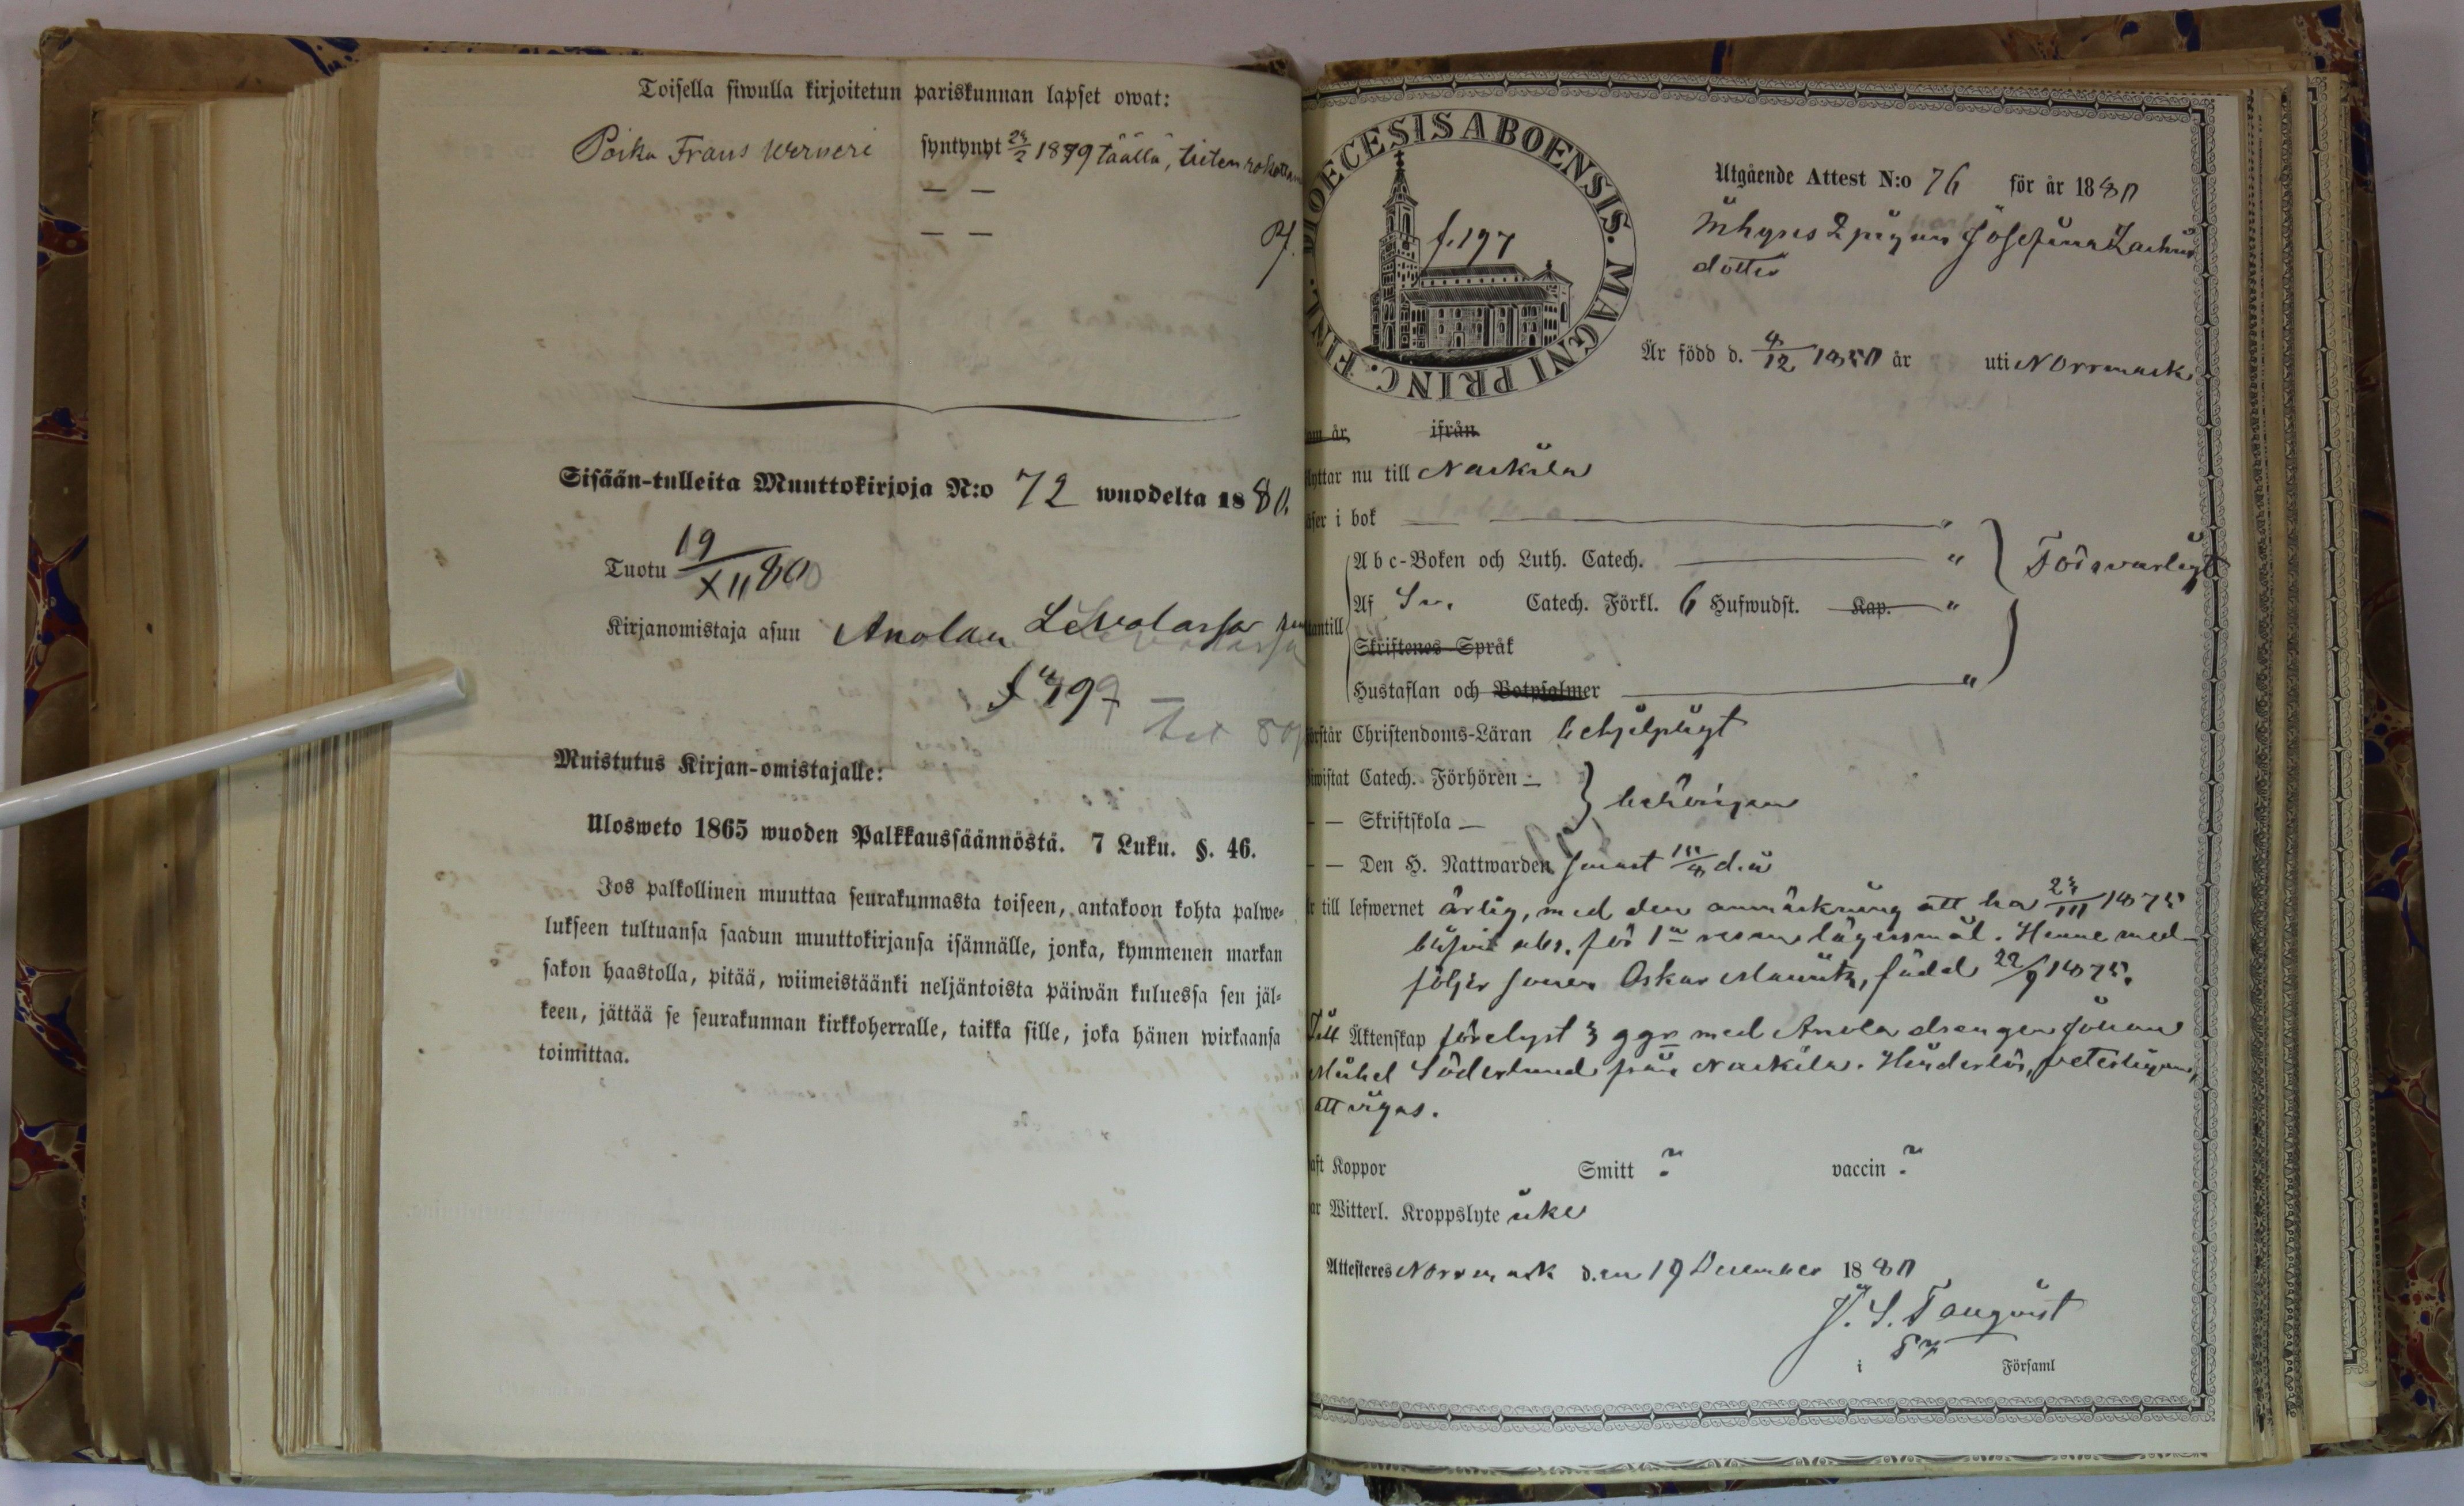 Toisella siwulla kirjoitetun pariskunnan lapset owat:
Poika Frans Werneri syntynyt 24/2 1879 täällä,
— —
— —
Sisään-tulleita Muuttokirjoja N:o 72 wuodelta 1880.
Tuotu 19/XII 80
Kirjanomistaja asuu Anolan Lewolassa
f 197
Muistutus Kirjan-omistajalle:
Ulosweto 1865 wuoden Palkkaussäännöstä. 7 Luku. §. 46.
Jos palkollinen muuttaa seurakunnasta toiseen, antakoon kohta palwe-
lukseen tultuansa saadun muuttokirjansa isännälle, jonka, kymmenen markan
sakon haastolla, pitää, wiimeistäänki neljäntoista päiwän kuluessa sen jäl-
keen, jättää se seurakunnan kirkkoherralle, taikka sille, joka hänen wirkaansa
toimittaa.
DIOECESIS ABOENSIS. MAGNI PRINC. FINL.
f. 197
Utgående Attest N:o 76 för år 1880
pigan Josefina Zachris
dotter
Är född d. 4/12 1850 år uti Norrmark
om år ifrån
lyttar nu till Nackila
äser i bok — "
Abc-Boken och Luth. Catech. — "
Försvarligt
Af Sv. Catech. Förkl. 6 Hufwudst. Kap. "
antill
Skriftenes Språk
Hustaflan och Botpsalmer — "
rstår Christendoms-Läran behjelpligt
iwistat Catech. Förhören —
behörigen
— — Skriftskola —
— — Den H. Nattwarden senast 10/4 d.å
r till lefwernet ärlig, med den anmärkning att ha 24/10 1875
blifvit abs. för 1a resan lägersmål. Henne med-
följer sonen Oskar Mauritz, född 22/9 1875.
Till Äktenskap förelyst 3 ggr med Anola drengen Johan
Mickel Söderlund från Nackila. Hinderlös,
att vigas.
aft Koppor Smitt ? vaccin ?
ar Witterl. Kroppslyte icke
Attesteres Norrmark d.en 19 December 1880
J. S. Tanqvist
i Församl